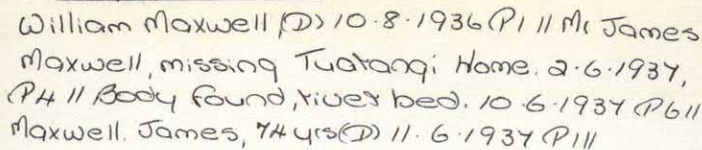 William Maxwell (D) 10.8.1936 (P1 // Mr James
Maxwell, missing Tuarangi Home. 2.6.1937,
(P4 // Body found, river bed. 10.6.1937 (P6 //
Maxwell. James, 74 yrs (D) 11.6.1937 (P1 //